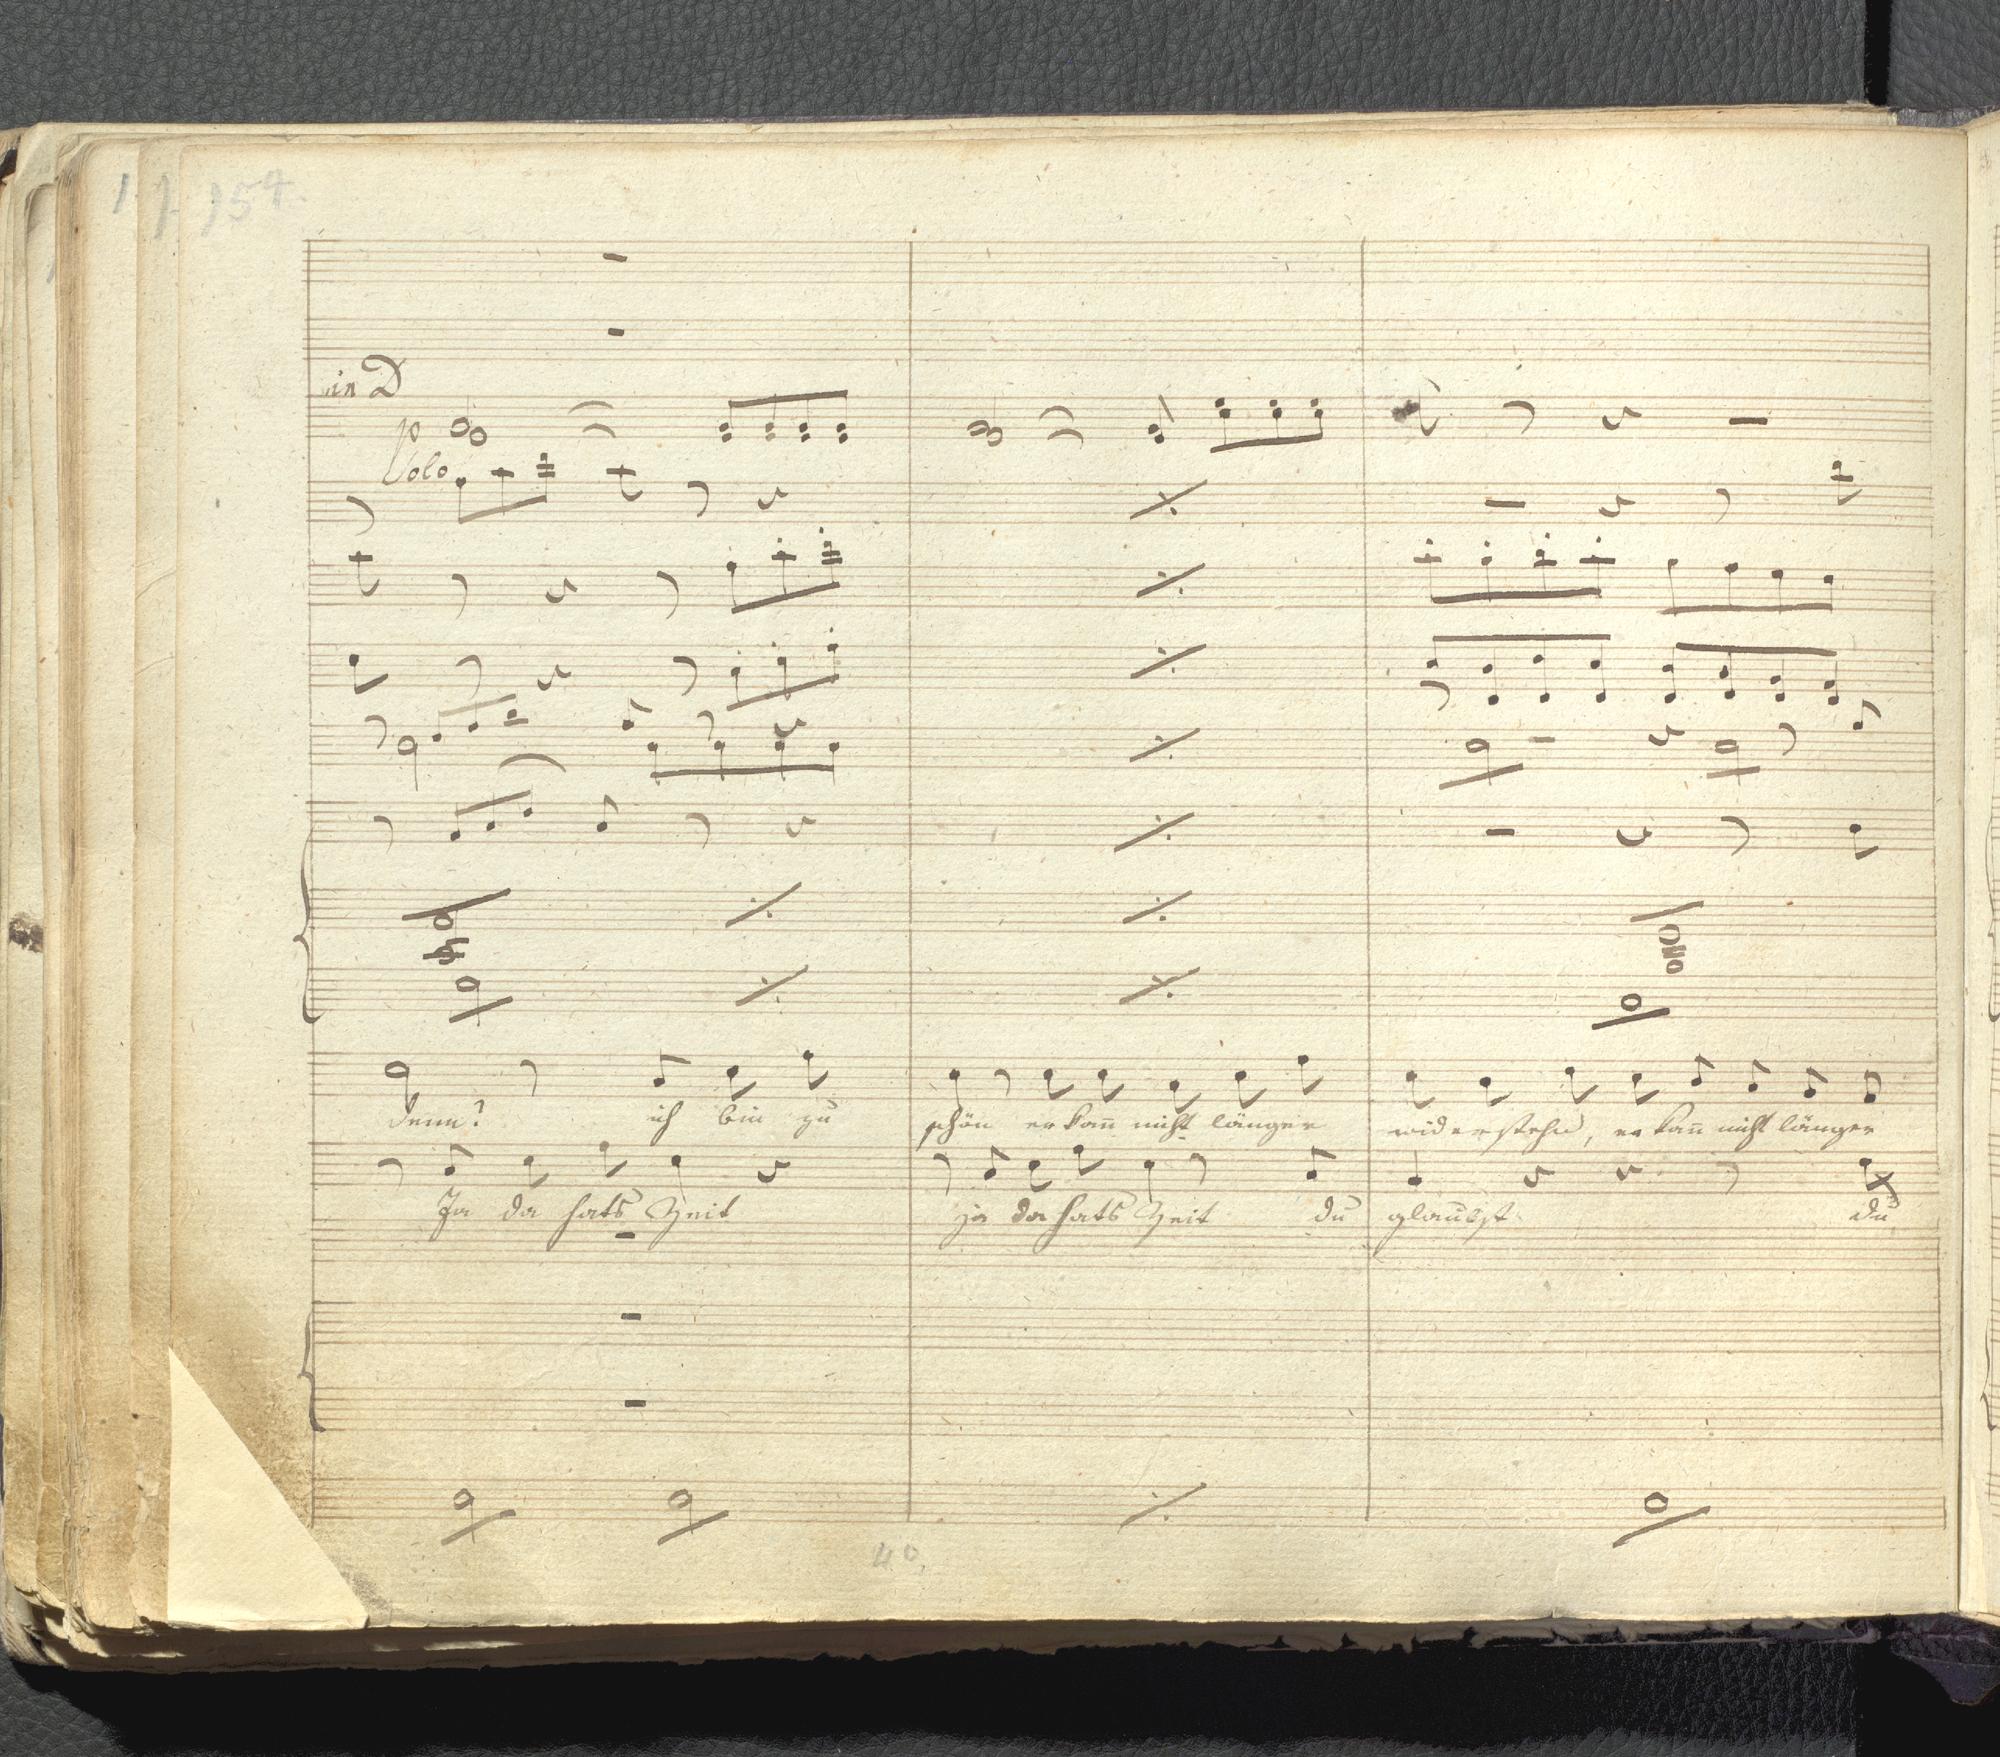 154.
in D
p
Solo
denn? ich bin zu schön er kan̄ nicht länger widerstehn, er kan̄ nicht länger
Ja da hats Zeit ja da hats Zeit du glaubst du
40